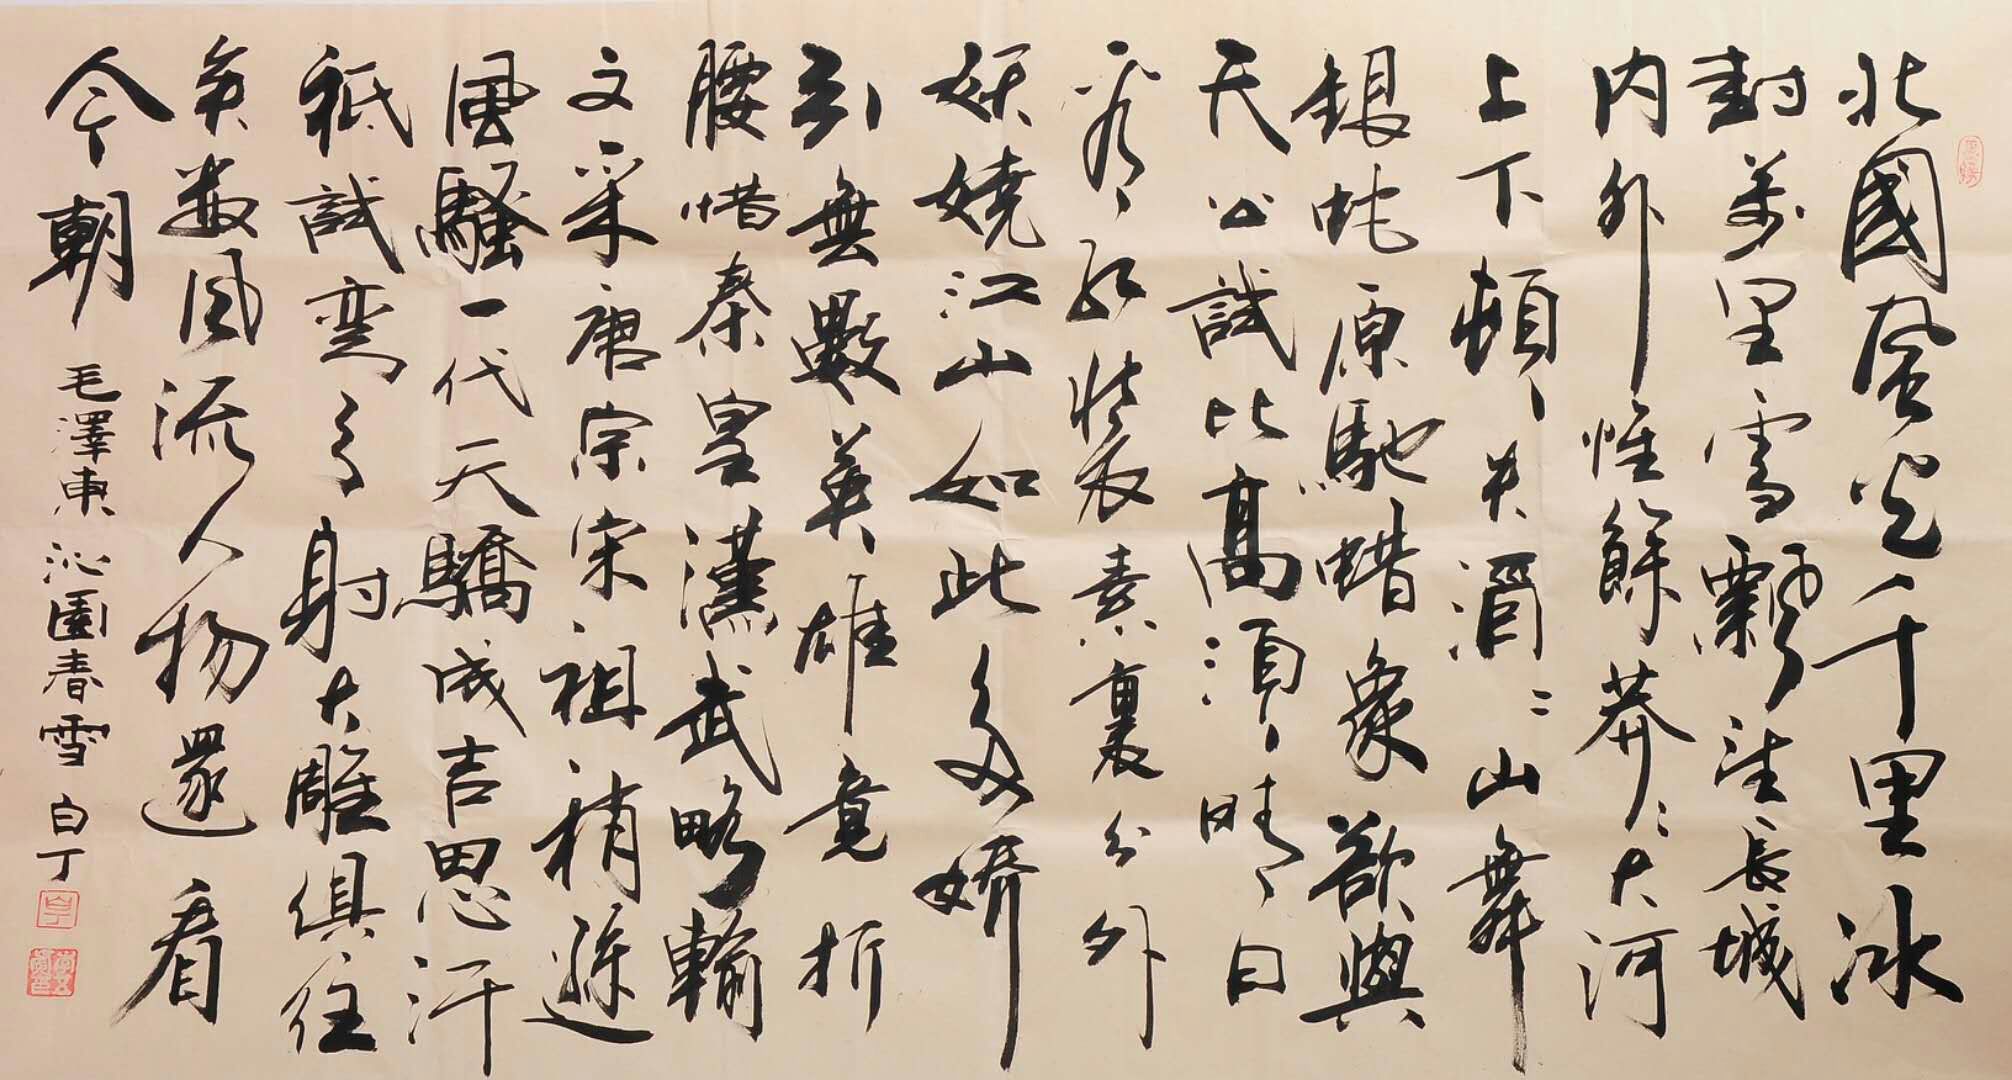 北國風光千里冰
封萬里雪飄望長城
内外惟餘莽〻大河
上下頓失滔〻山舞
銀蛇原馳蜡象欲與
天公試比高須晴日
看紅裝素裹分外
妖嬈江山如此多嬌
引無數英雄竟折
腰惜秦皇漢武略輸
文采唐宗宋祖稍遜
風騷一代天驕成吉思汗
祇識彎弓射大雕俱往
矣數風流人物還看
今朝
毛澤東沁園春雪 白丁
白丁